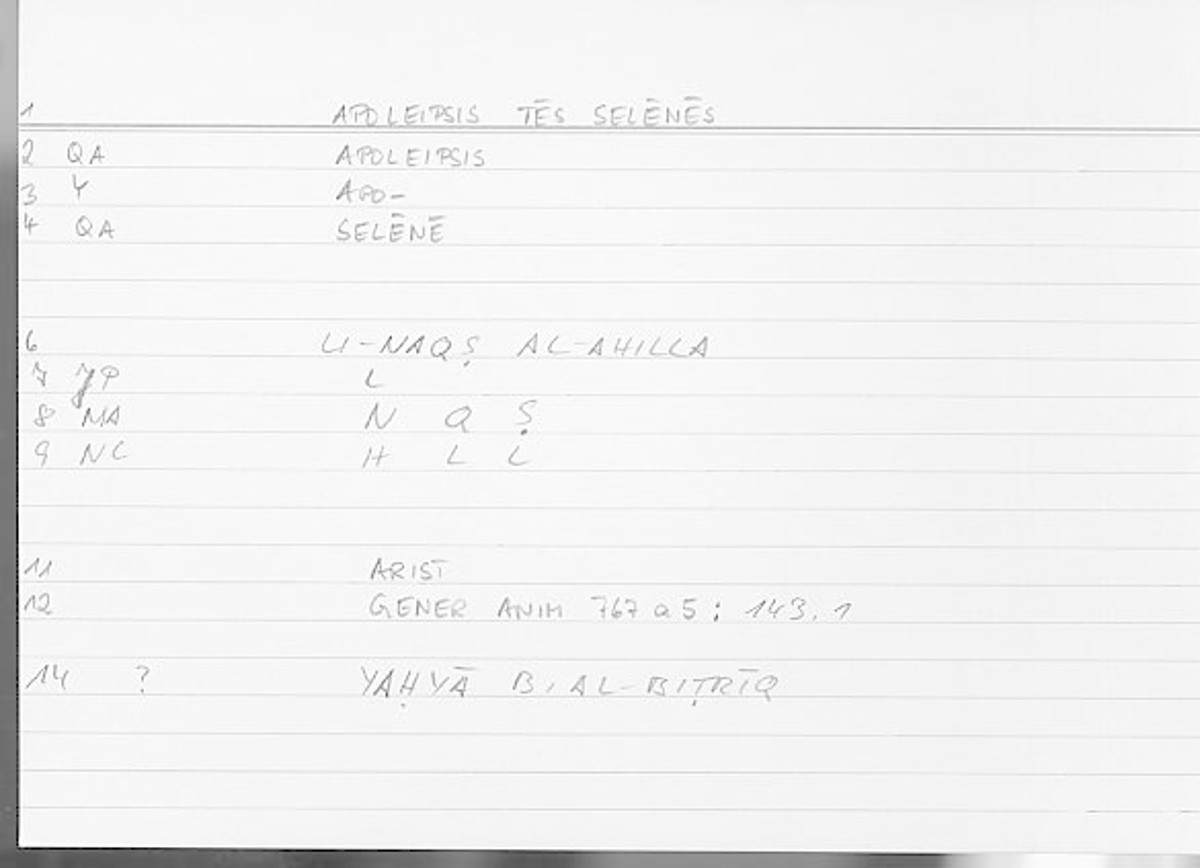 1 APOLEIPSIS TĒS SELĒNĒS
2 QA APOLEIPSIS
3 Y APO-
4 QA SELĒNĒ
6 LI-NAQṢ AL-AHILLA
7 JP L
8 MA N Q Ṣ
9 NC H L L
11 ARIST
12 GENER ANIM 767 a 5 : 143.1
14 ? YAḤYĀ B. AL-BIṬRĪQ